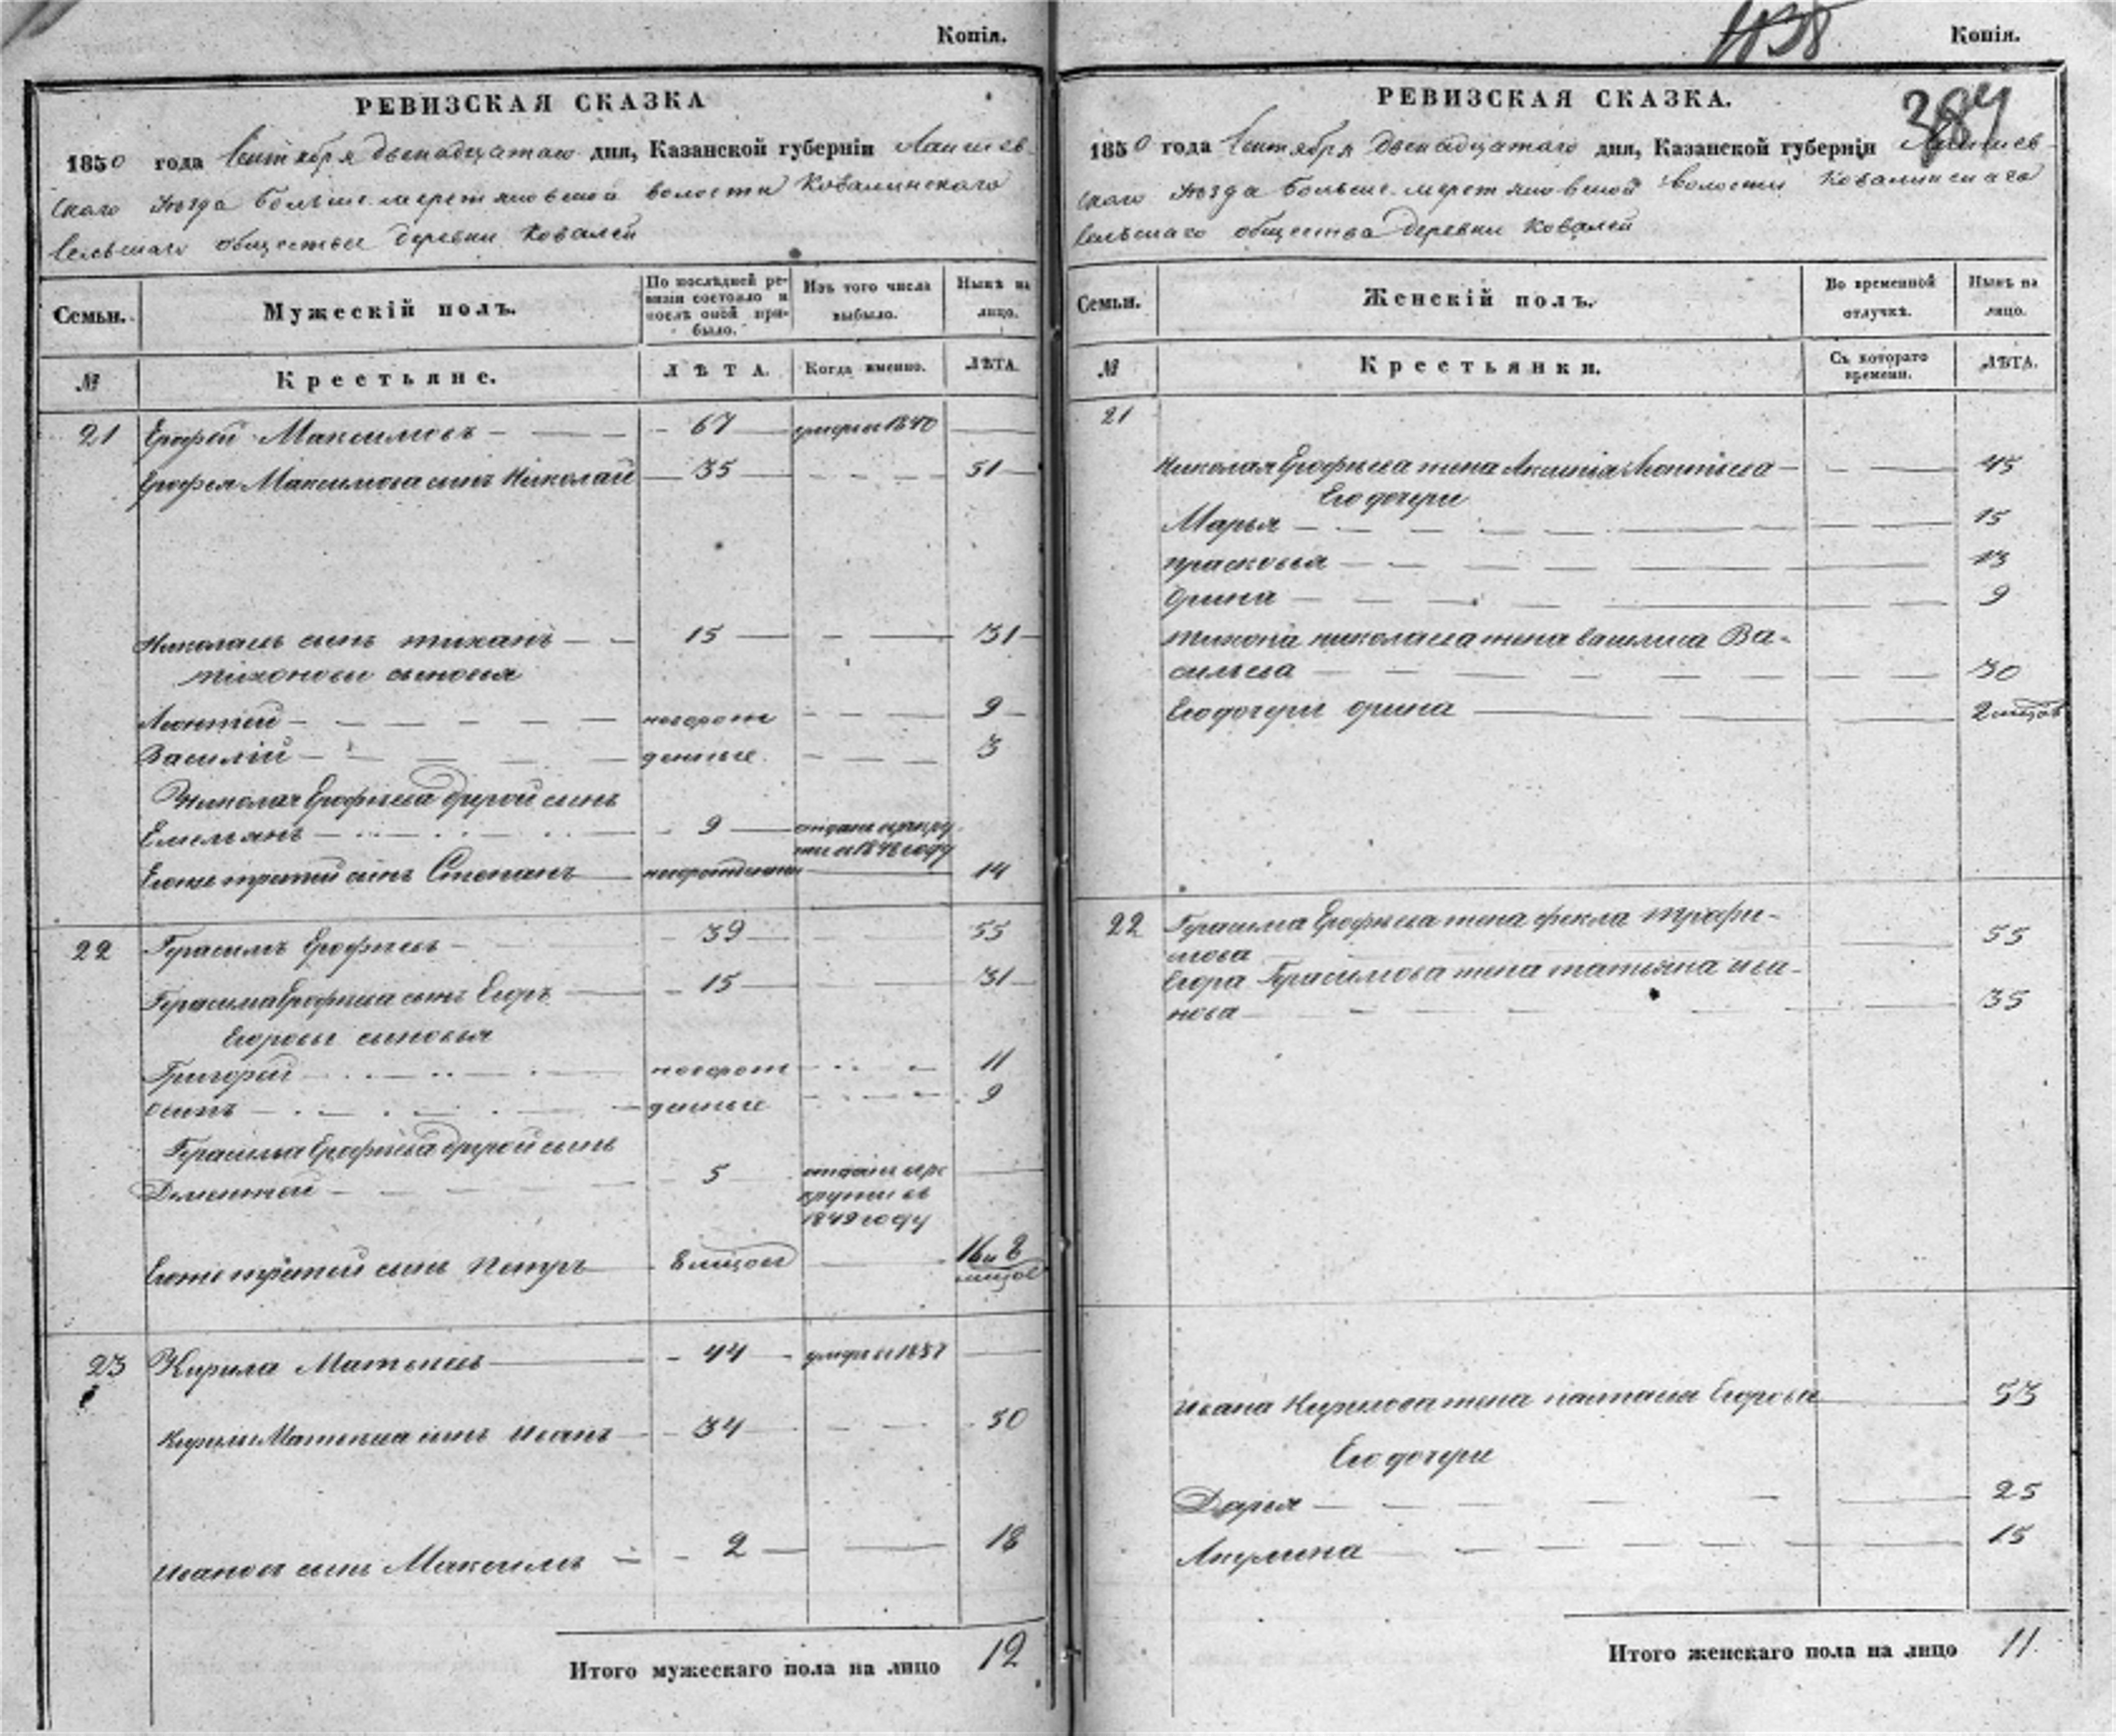 Копія.
РЕВИЗСКАЯ СКАЗКА
1850 года Сентября двенадцатаго дня, Казанской губерніи Лаишев-
скаго уѣзда больше-меретяковской волости Ковалинскаго
сельскаго общества деревни Ковалей
Семьи.
Мужескій полъ.
По послѣдней ре-
визіи состояло и
послѣ оной при-
было.
Изъ того числа
выбыло.
Нынѣ на
лицо.
№
Крестьяне.
ЛѢТА.
Когда именно.
ЛѢТА.
21 Ерофей Максимовъ 67 умеръ в 1840
Ерофея Максимова сынъ Николай 35 51
Николаевъ сынъ тиханъ 15 31
тихоновы сыновья
Леонтей неорож 9
Василій денные 3
Николая Ерофѣева другой сынъ
Емельянъ 9 отданъ в рекру
ты в 1848 году
Егоже третей сынъ Степанъ неорожденъ 14
22 Герасимъ Ерофѣевъ 39 55
Герасима Ерофѣева сынъ Егоръ 15 31
Егоровы сыновья
Григорей неорож 11
Осипъ денные 9
Герасима Ерофѣева другой сынъ
Дементей 5 отданъ в ре
круты въ
1849 году
Егоже третей сынъ Петръ 8 мѣцов 16 и 8
мѣцов
23 Кирила Матвѣевъ 44 умеръ в 1837
Кирилы Матвѣева сынъ Иванъ 34 50
Ивановъ сынъ Максимъ 2 18
Итого мужескаго пола на лицо 12
Копія.
384
РЕВИЗСКАЯ СКАЗКА.
1850 года Сентября двенадцатаго дня, Казанской губерніи Лаишев-
скаго уѣзда больше-меретяковской волости Ковалинскаго
сельскаго общества деревни Ковалей
Семьи.
Женскій полъ.
Во временной
отлучкѣ.
Нынѣ на
лицо.
№
Крестьянки.
Съ котораго
времени.
ЛѢТА.
21
Николая Ерофѣева жена Аксинія Леонтьева 45
Его дочери
Марья 15
прасковья 13
Орина 9
тихона николаева жена василиса Ва-
сильева 30
Его дочери орина 2 мѣцов
22 Герасима Ерофѣева жена фекла трофи-
мова 55
Егора Герасимова жена татьяна ива-
нова 35
Ивана Кирилова жена наталья Егорова 53
Его дочери
Дарья 25
Акулина 15
Итого женскаго пола на лицо 11.